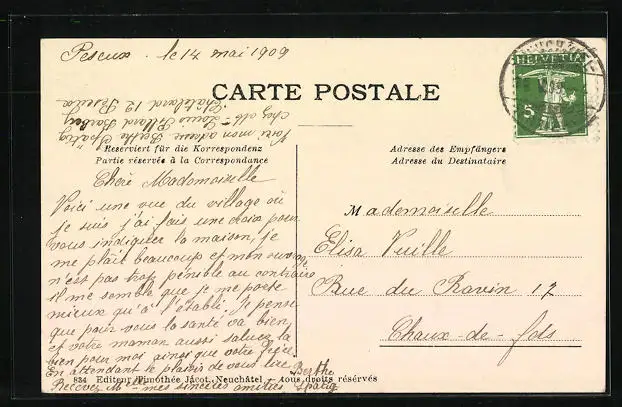 Peseux . le 14 mai 1909
CARTE POSTALE
HELVETIA
5
Voici mon adresse Berthe Spatig
chez Mr Louis Rolland Barbier
Châtelard 12 Peseux
Reserviert für die Korrespondenz
Partie réservée à la Correspondance
Adresse des Empfängers
Adresse du Destinataire
Chère Mademoiselle
Voici une vue du village où
je suis j'ai fais une croix pour
vous indiquer la maison, je
me plait beaucoup et mon ouvrage
n'est pas trop pénible au contraire
il me semble que je me porte
mieux qu'à l'établi. Je pense
que pour vous la santé va bien,
et votre maman aussi saluez la
bien pour moi ainsi que votre frère
En attendant le plaisir de vous lire
Recevez Mlle mes sincères amitiés
Berthe
Spatig
Mademoiselle
Elisa Vuille
Rue du Ravin 17
Chaux-de-fds
834 Editeur Timothée Jacot, Neuchâtel - Tous droits réservés